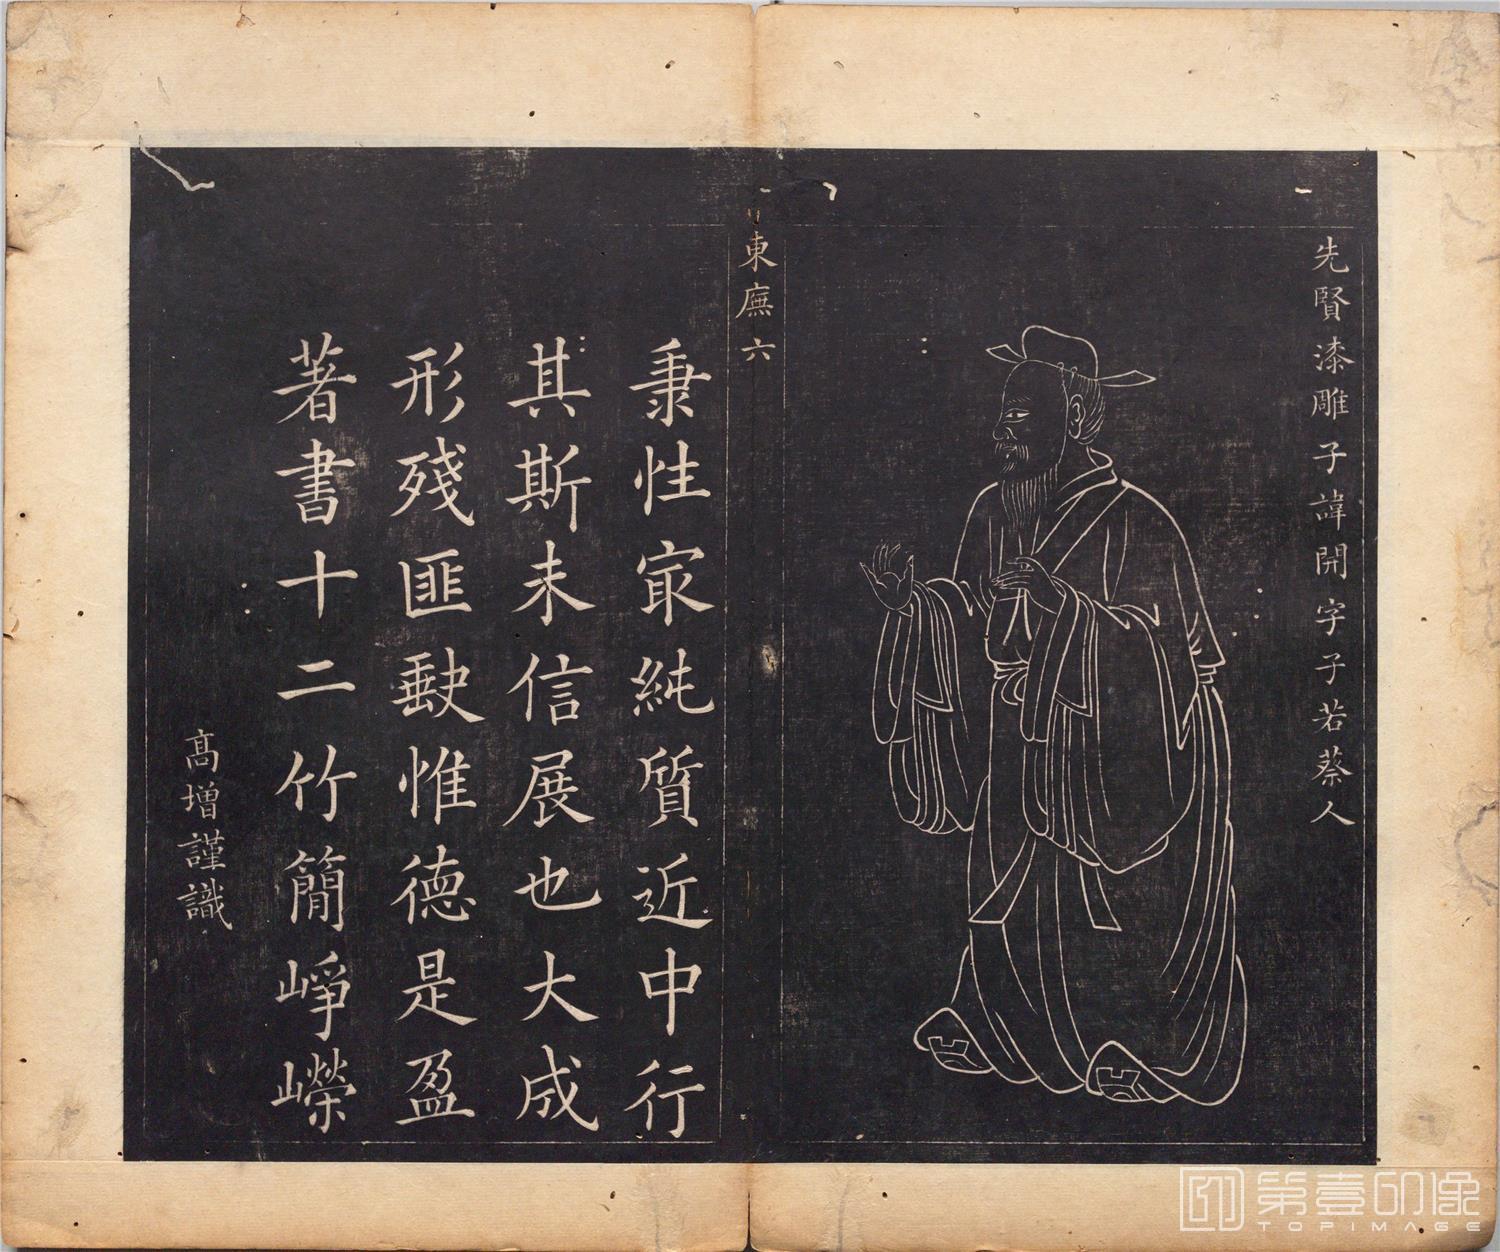 先賢漆雕子諱開字子若蔡人
東廡六
秉性㝡純質近中行
其斯未信展也大成
形殘匪㱿惟德是盈
著書十二竹簡崢嶸
高增謹識
第壹印像
TOPIMAGE